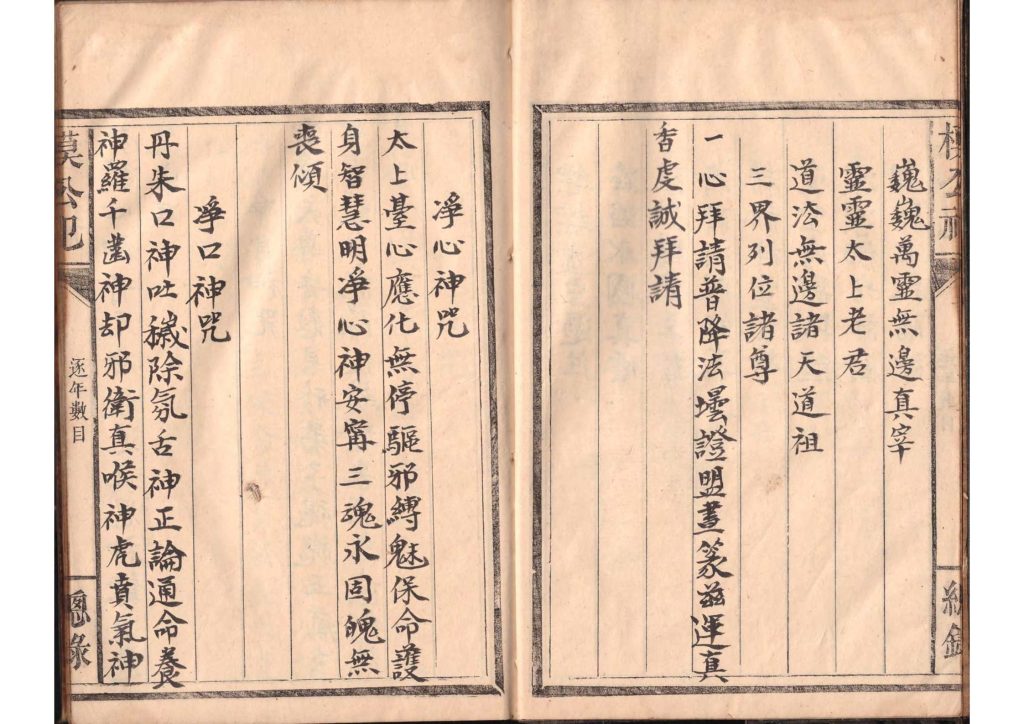 巍巍萬靈無邊真宰
靈靈太上老君
道法無邊諸天道祖
三界列位諸尊
一心拜請普降法壇證盟畫篆茲運真
香虔誠拜請
淨心神咒
太上臺心應化無停驅邪縛魅保命護
身智慧明凈心神安寗三魂永固魄無
喪傾
凈口神咒
丹朱口神吐穢除氛舌神正論通命養
神羅千齒神却邪衛真喉神虎賁氣神
逐年數目
總錄